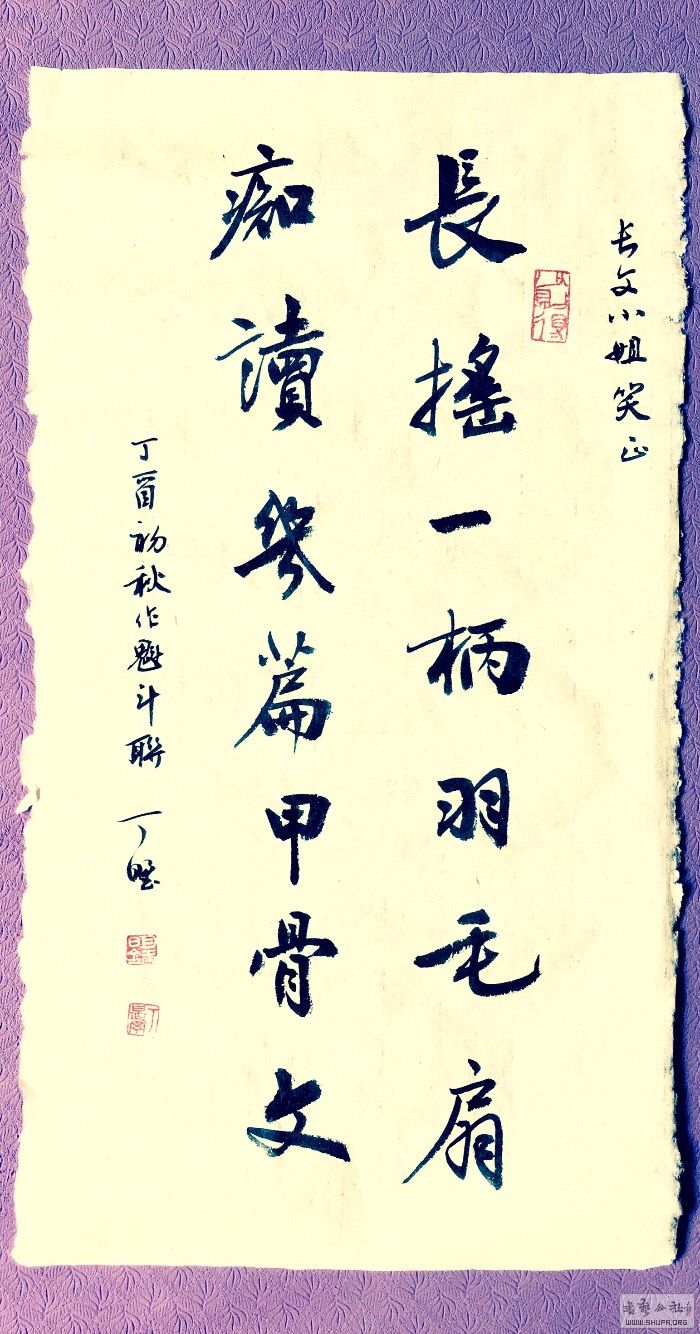 长文小姐笑正
長搖一柄羽毛扇
痴讀幾篇甲骨文
丁酉初秋作魁斗聯
WWW.SHUFA.ORG